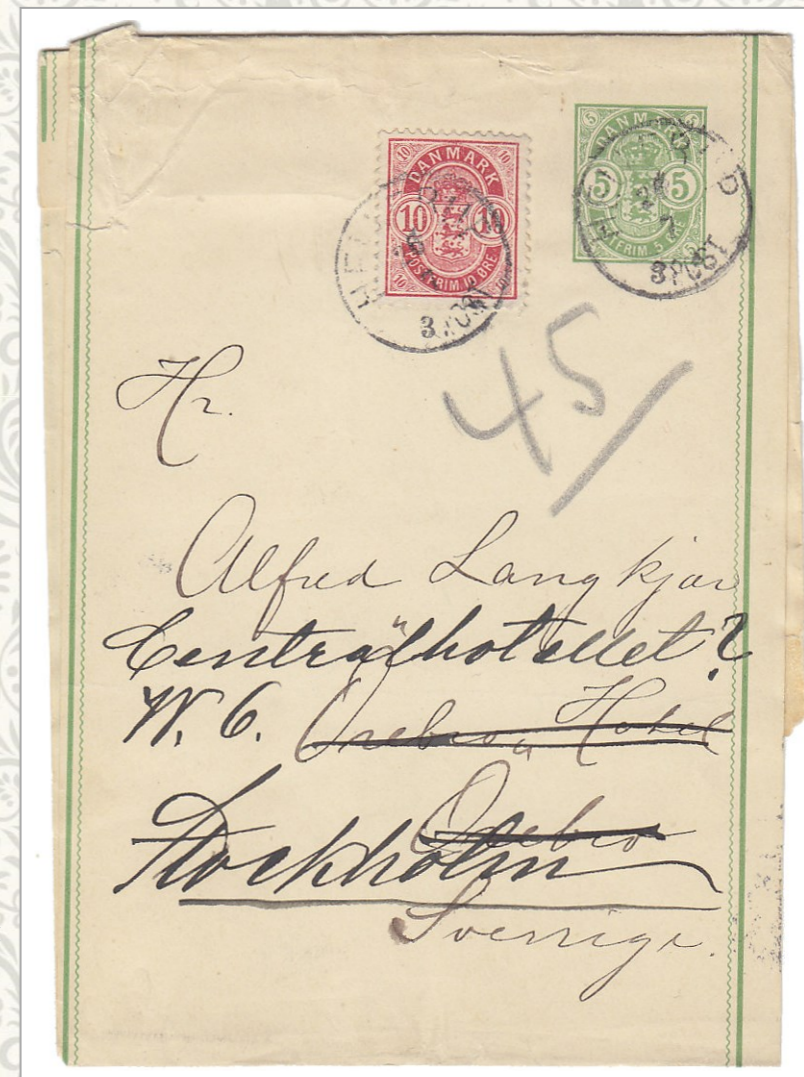 10 DANMARK 10
10 10
POSTFRIM 10 ØRE
10
5 DANMARK 5
5 5
POSTFRIM 5 ØRE
3 POST
3 POST
45/
Hr.
Alfred Langkjær
"Centralhotellet"
N. 6. Örebro Hotel
Örebro
Stockholm
Sverrige.